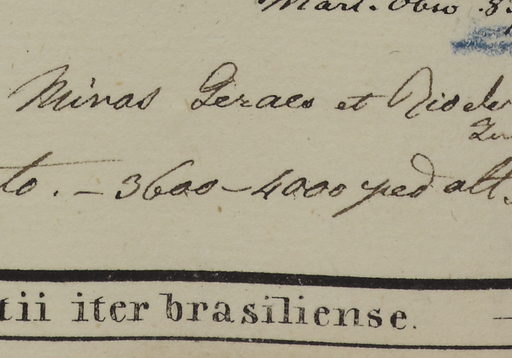 Mart. Obs
Minas Geraes et Rio de
to. – 3600–4000 ped alt.
tii iter brasiliense. –